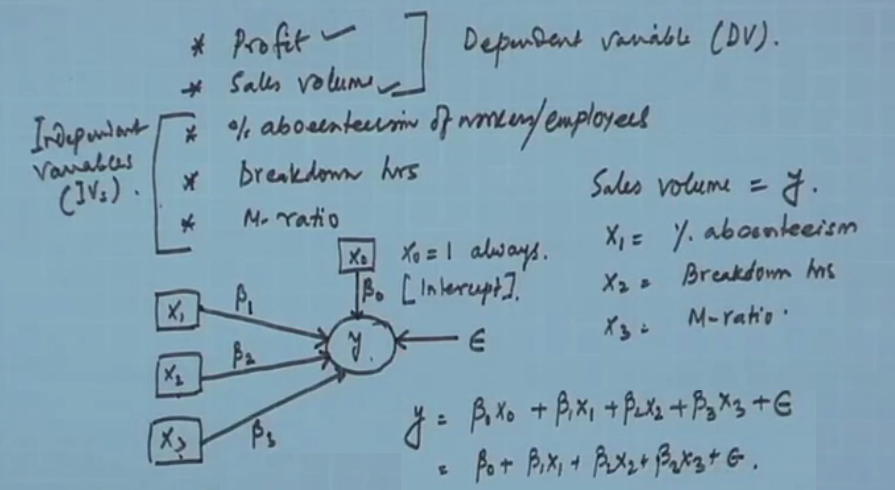 * Profit ✓
* Sales volume ✓
Dependent variable (DV).
Independent
variables
(IVs).
* % absenteeism of workers/employees
* Breakdown hrs
* M-ratio
Sales volume = y.
X₁ = % absenteeism
X₂ = Breakdown hrs
X₃ = M-ratio.
X₀ X₀ = 1 always.
β₀ [Intercept].
X₁ β₁
X₂ β₂
X₃ β₃
y ε
y = β₀X₀ + β₁X₁ + β₂X₂ + β₃X₃ + ε
= β₀ + β₁X₁ + β₂X₂ + β₃X₃ + ε.